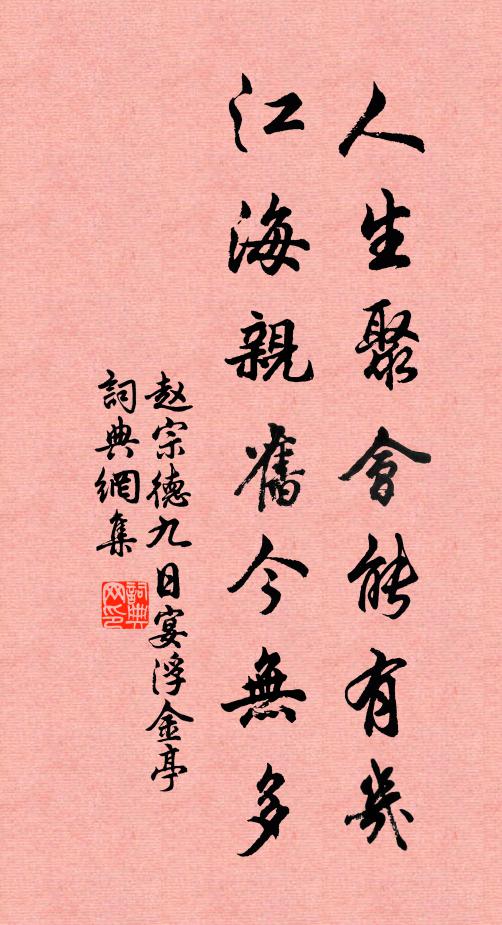 人生聚會能有幾
江海親舊今無多
赵宗德九日宴浮金亭
詞典網集
詞典网印